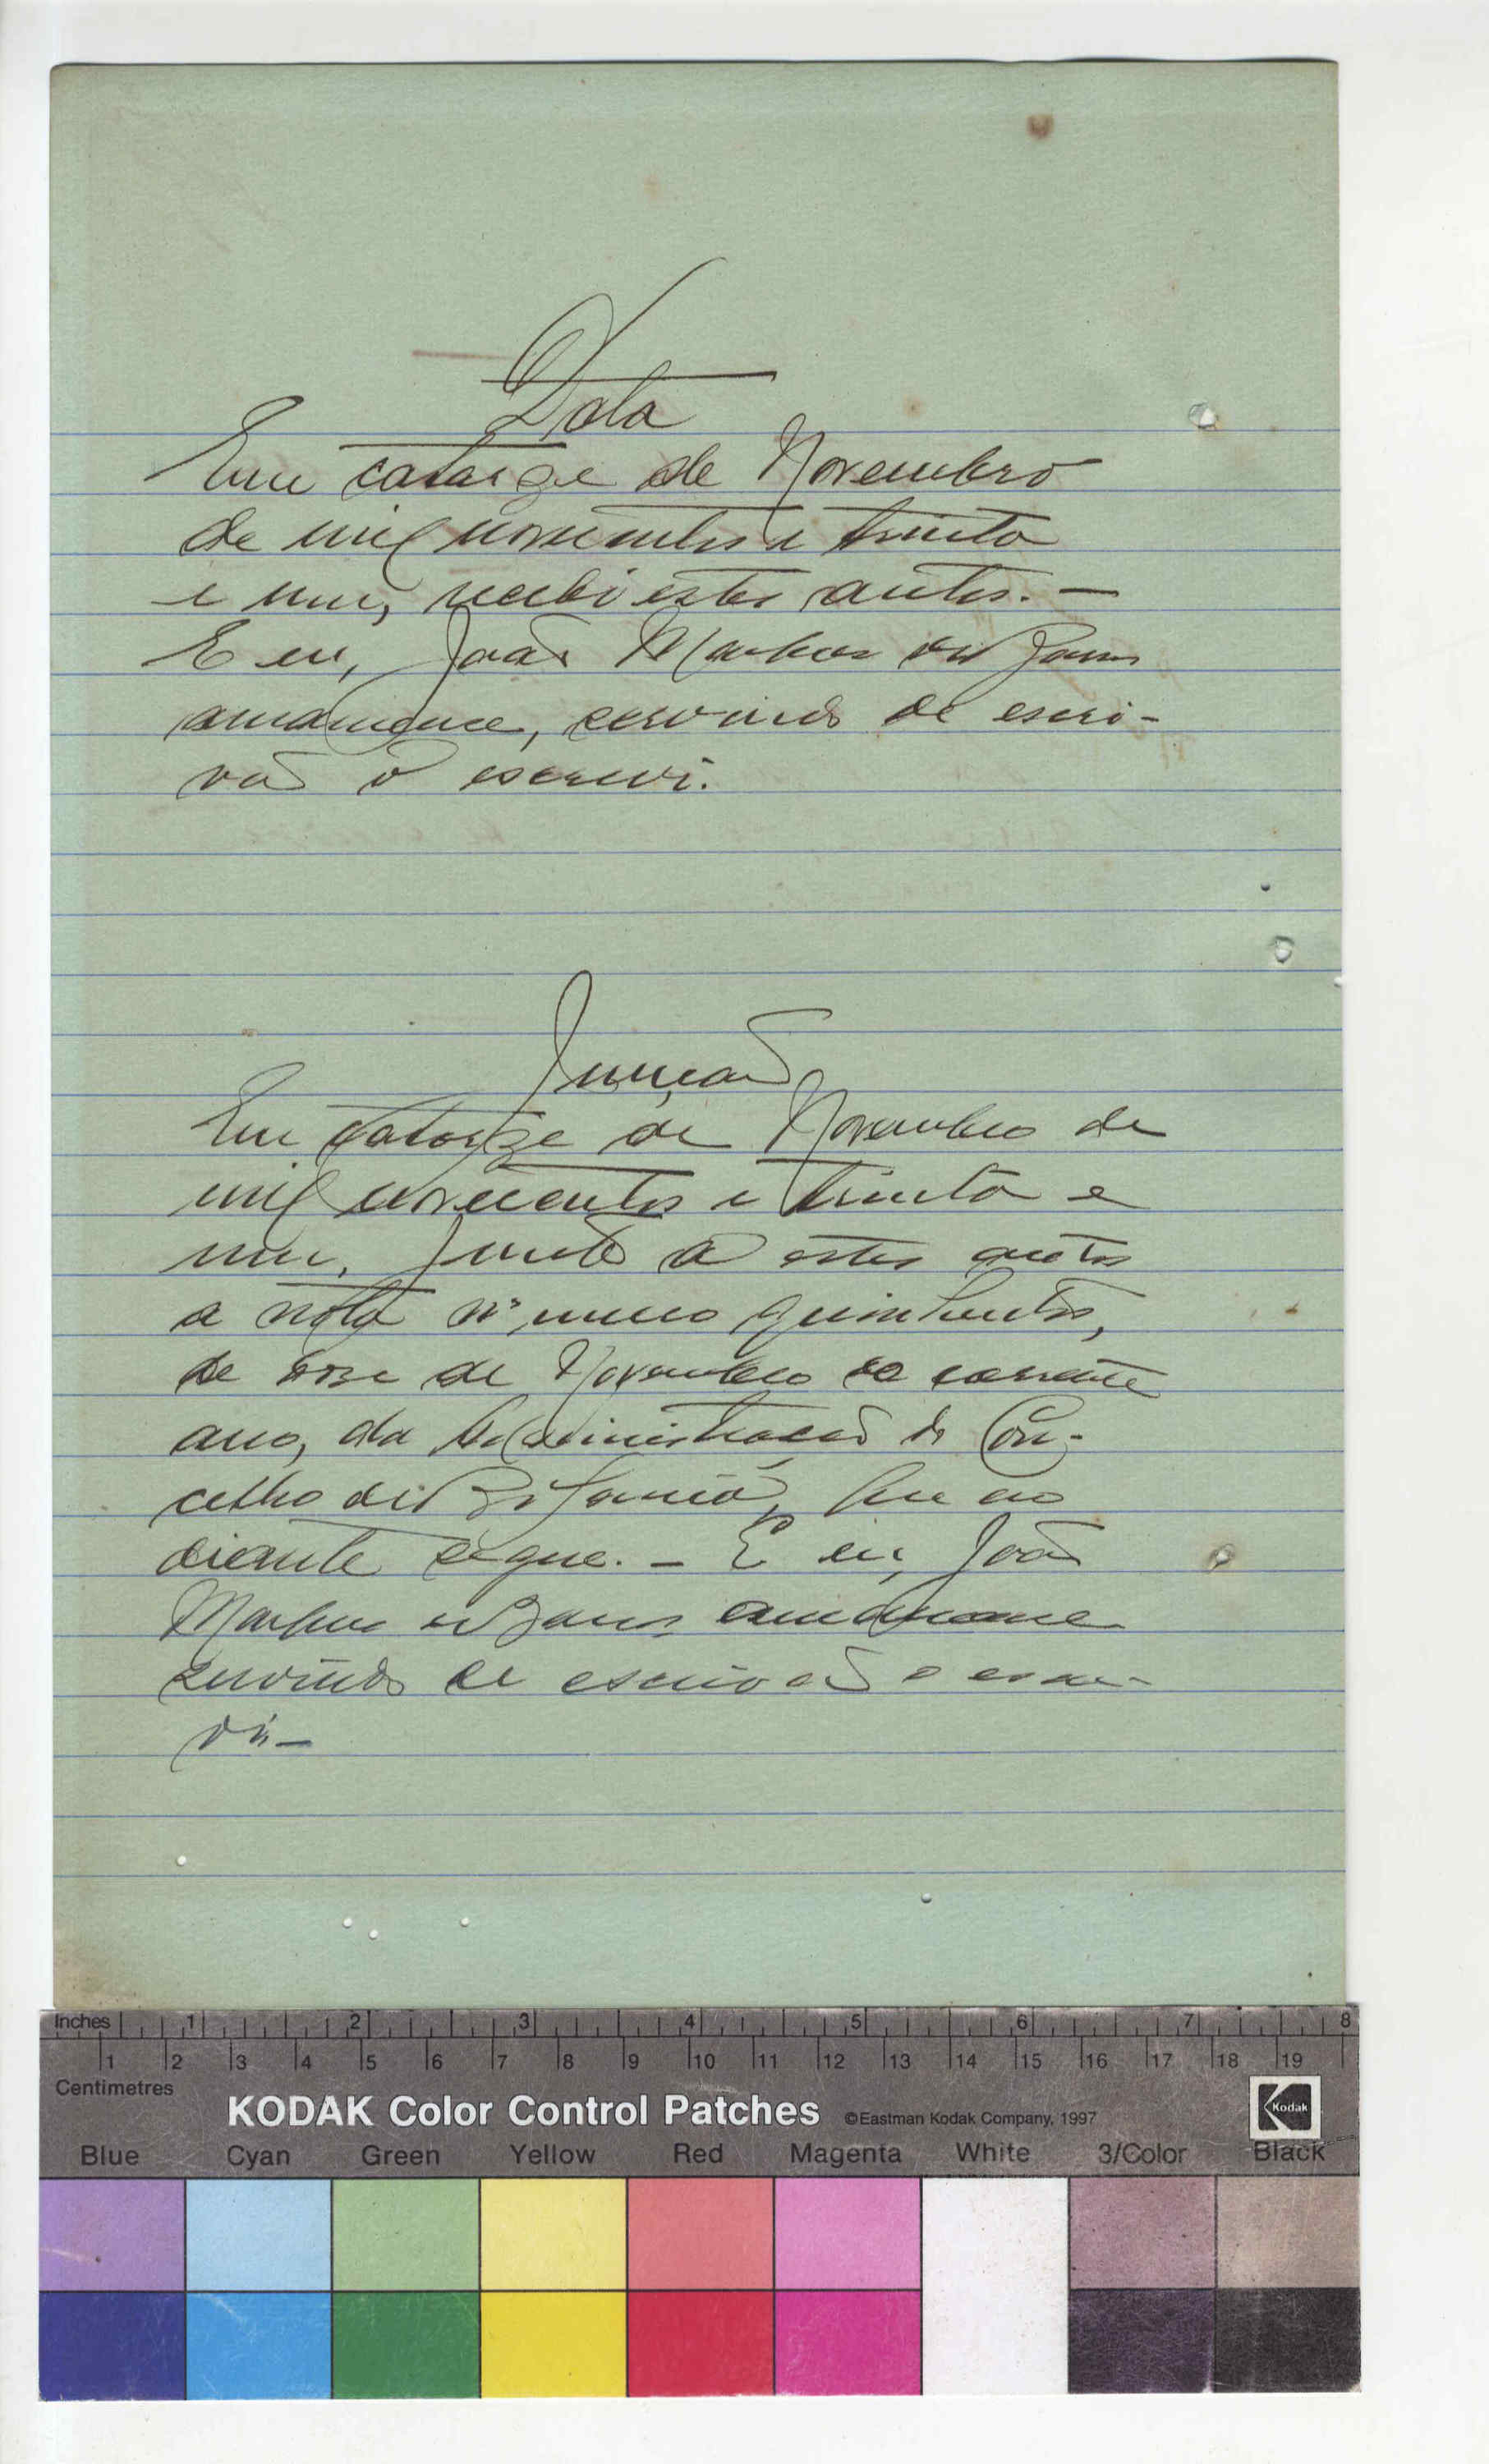 Data
Em catorze de Novembro
de mil novecentos e trinta
e um, recebi estes autos. —
E eu, João Marques de Barros
amanuense, servindo de escri-
vão o escrevi.
Junção
Em catorze de Novembro de
mil novecentos e trinta e
um, junto a estes autos
a nota nº, quinhentos,
de doze de Novembro do corrente
ano, da Administração do Con-
celho de, que ao
diante segue. — E eu, João
Marques de Barros amanuense
servindo de escrivão o escre-
vi —
Inches 1 2 3 4 5 6 7 8
1 2 3 4 5 6 7 8 9 10 11 12 13 14 15 16 17 18 19
Centimetres
KODAK Color Control Patches ©Eastman Kodak Company, 1997 Kodak
Blue Cyan Green Yellow Red Magenta White 3/Color Black